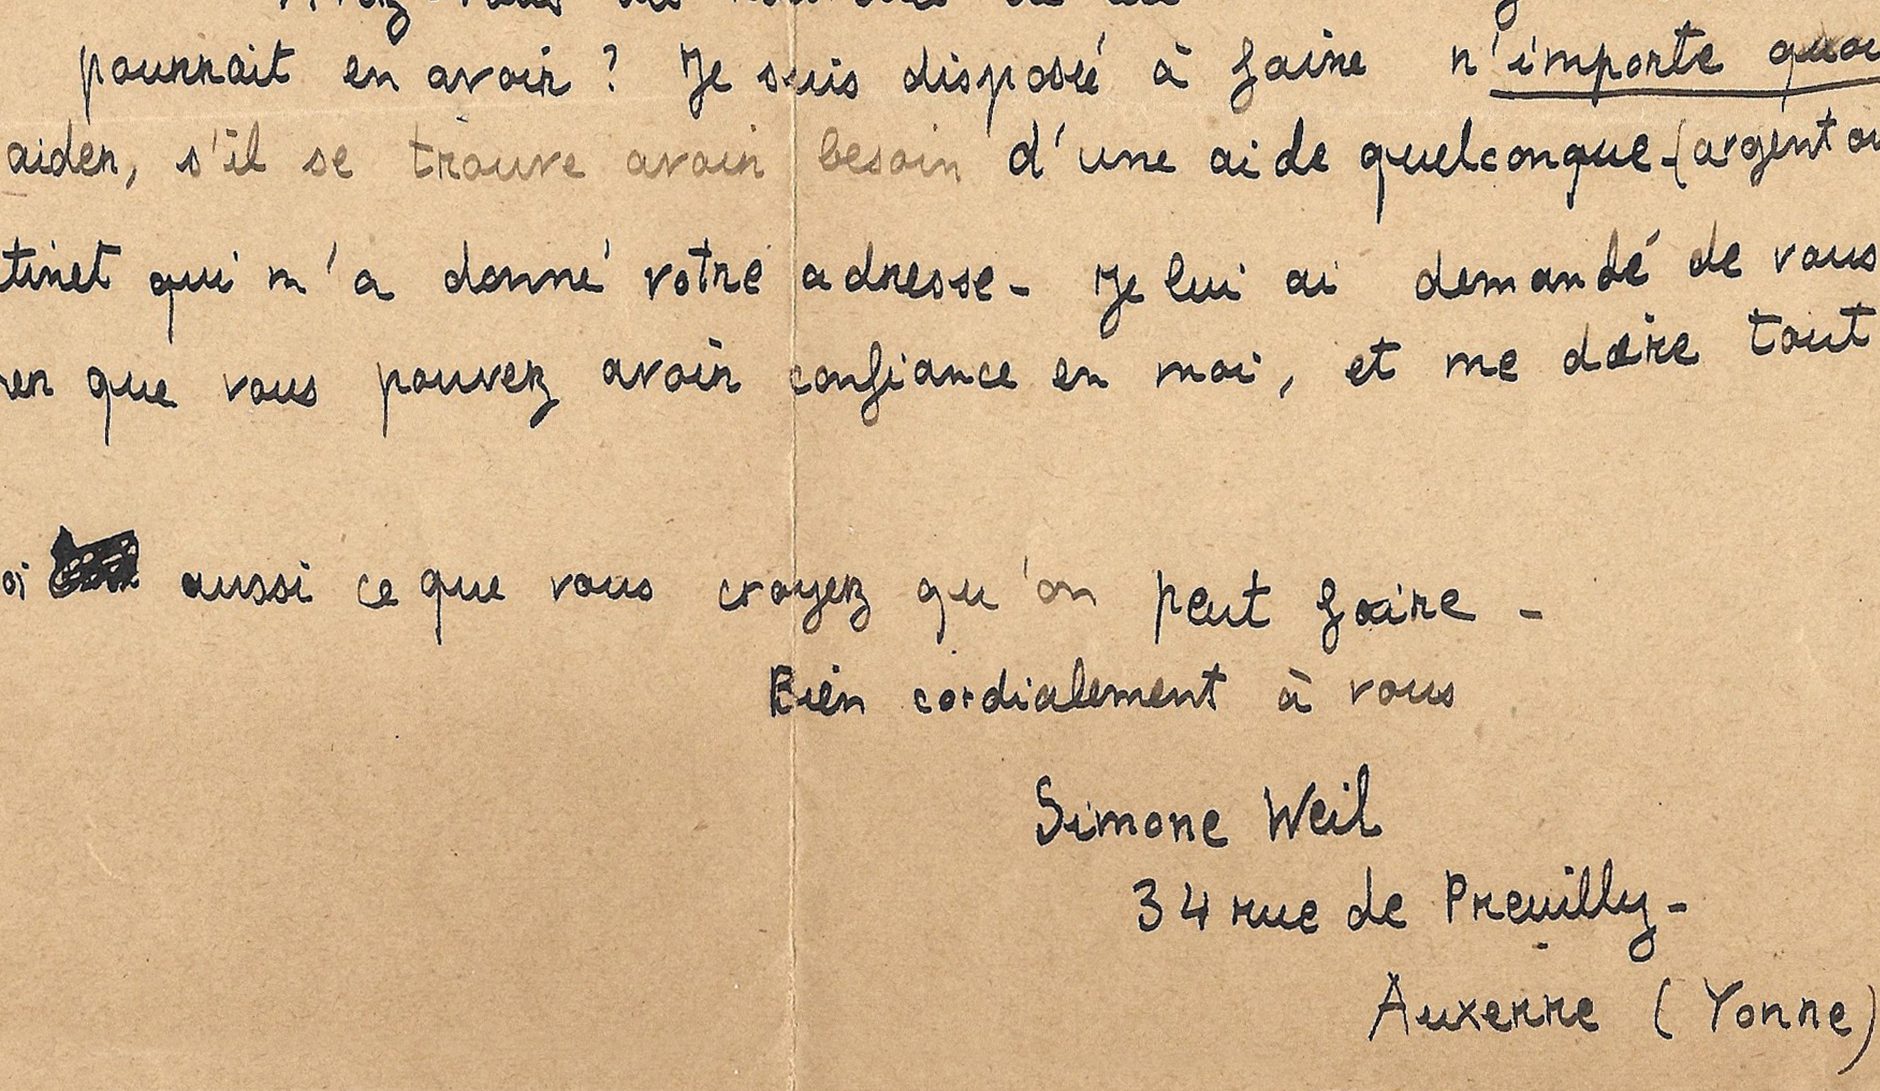 pourrait en avoir ? Je suis disposé à faire n'importe quoi
aider, s'il se trouve avoir besoin d'une aide quelconque - (argent ou
tinet qui m'a donné votre adresse - Je lui ai demandé de vous
rer que vous pouvez avoir confiance en moi, et me dire tout
oi aussi ce que vous croyez qu'on peut faire -
Bien cordialement à vous
Simone Weil
34 rue de Preuilly -
Auxerre (Yonne)